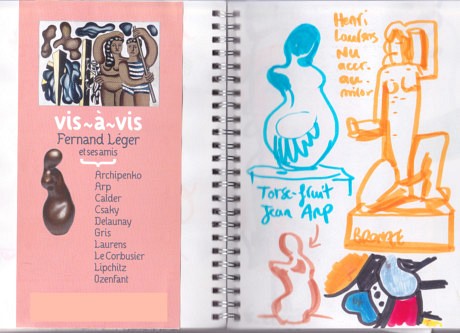 vis~à~vis
Fernand Léger
et ses amis
Archipenko
Arp
Calder
Csaky
Delaunay
Gris
Laurens
Le Corbusier
Lipchitz
Ozenfant
Henri
Laurens
Nu
accr.
au
miroir
Torse-fruit
Jean Arp
BRONZE